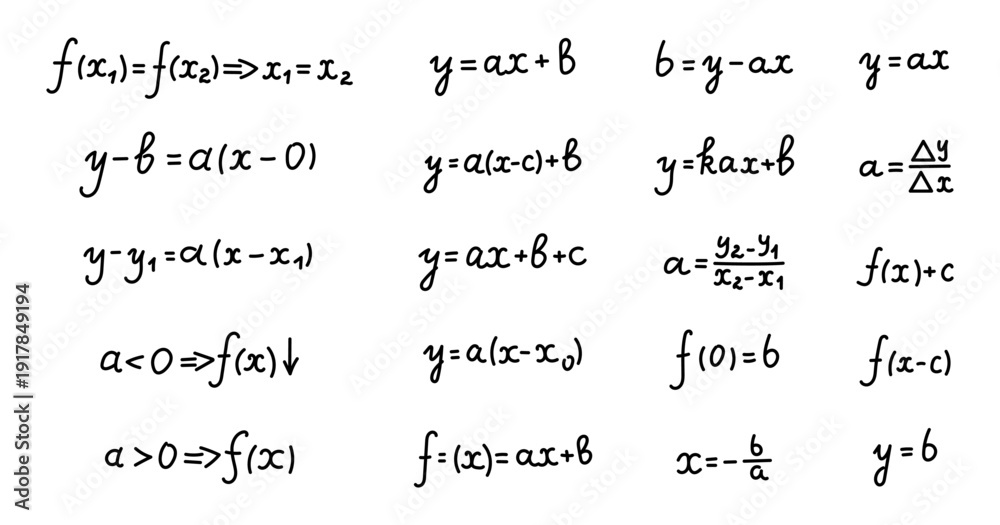 f(x₁)=f(x₂)⇒x₁=x₂ y=ax+b b=y-ax y=ax
y-b=a(x-0) y=a(x-c)+b y=kax+b a=Δy/Δx
y-y₁=a(x-x₁) y=ax+b+c a=y₂-y₁/x₂-x₁ f(x)+c
a<0⇒f(x)↓ y=a(x-x₀) f(0)=b f(x-c)
a>0⇒f(x) f=(x)=ax+b x=-b/a y=b
Adobe Stock | #1917849194